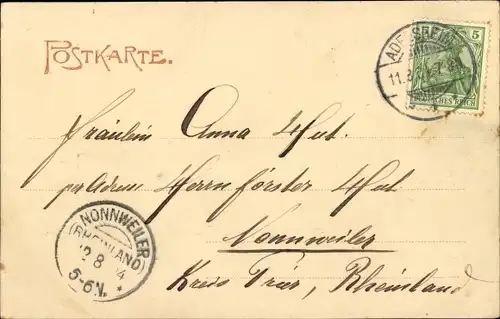 POSTKARTE.
ADELSHEIM
11.8.
5
DEUTSCHES REICH
Fräulein Anna Hut.
per Adresse Herrn Förster Hut
Nonnweiler
Kreis Trier, Rheinland
NONNWEILER
(RHEINLAND)
12 8 04
5-6N.